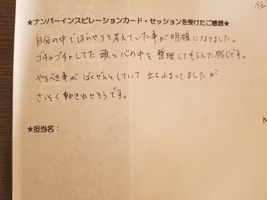 ★ナンバーインスピレーションカード・セッションを受けたご感想★
自分の中でぼんやりと考えていた事が明確になりました。
ゴチャゴチャしてた頭と心の中を整理してもらえた感じです。
やるべき事がばくぜんとしていて立ち止まってましたが
さっそく動き出せそうです。
★担当名：